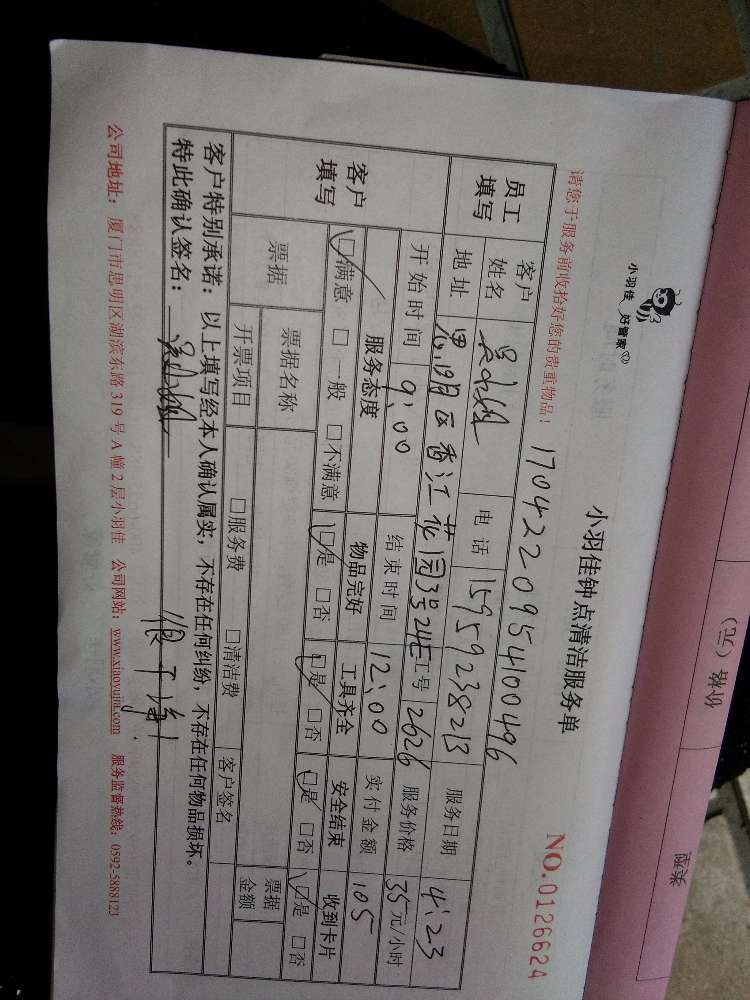 小羽佳 好管家
小羽佳钟点清洁服务单
NO.0126624
请您于服务前收拾好您的贵重物品!
170422095400496
员工填写
客户姓名
电话 15959238213
服务日期 4.23
地址 思明区香江花园3号24E
工号 2626
服务价格 35元/小时
开始时间 9:00
结束时间 12:00
实付金额 105
客户填写
服务态度 物品完好 工具齐全 安全结束 收到卡片
☑满意 □一般 □不满意 ☑是 □否 ☑是 □否 ☑是 □否 ☑是 □否
票据 票据名称 票据金额
开票项目 □服务费 □清洁费 客户签名
客户特别承诺:以上填写经本人确认属实,不存在任何纠纷,不存在任何物品损坏。
特此确认签名:
很干净!
公司地址:厦门市思明区湖滨东路319号A幢2层小羽佳 公司网站:www.xiaoyujia.com 服务监督热线:0592-5888123
价格(元)